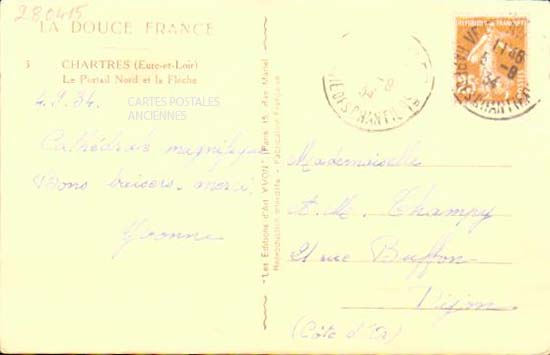 280415
LA DOUCE FRANCE
3 CHARTRES (Eure-et-Loir)
Le Portail Nord et la Flèche
4.9.34.
CARTES POSTALES
ANCIENNES
Cathédrale magnifique
Bons baisers. merci
Yvonne
"Les Editions d'Art YVON" (Paris 15, Rue Martel)
Reproduction Interdite - Fabrication Française
REPUBLIQUE FRANCAISE
25
34
Mademoiselle
A. M. Champy
21 rue Buffon
Dijon
(Côte d'Or)